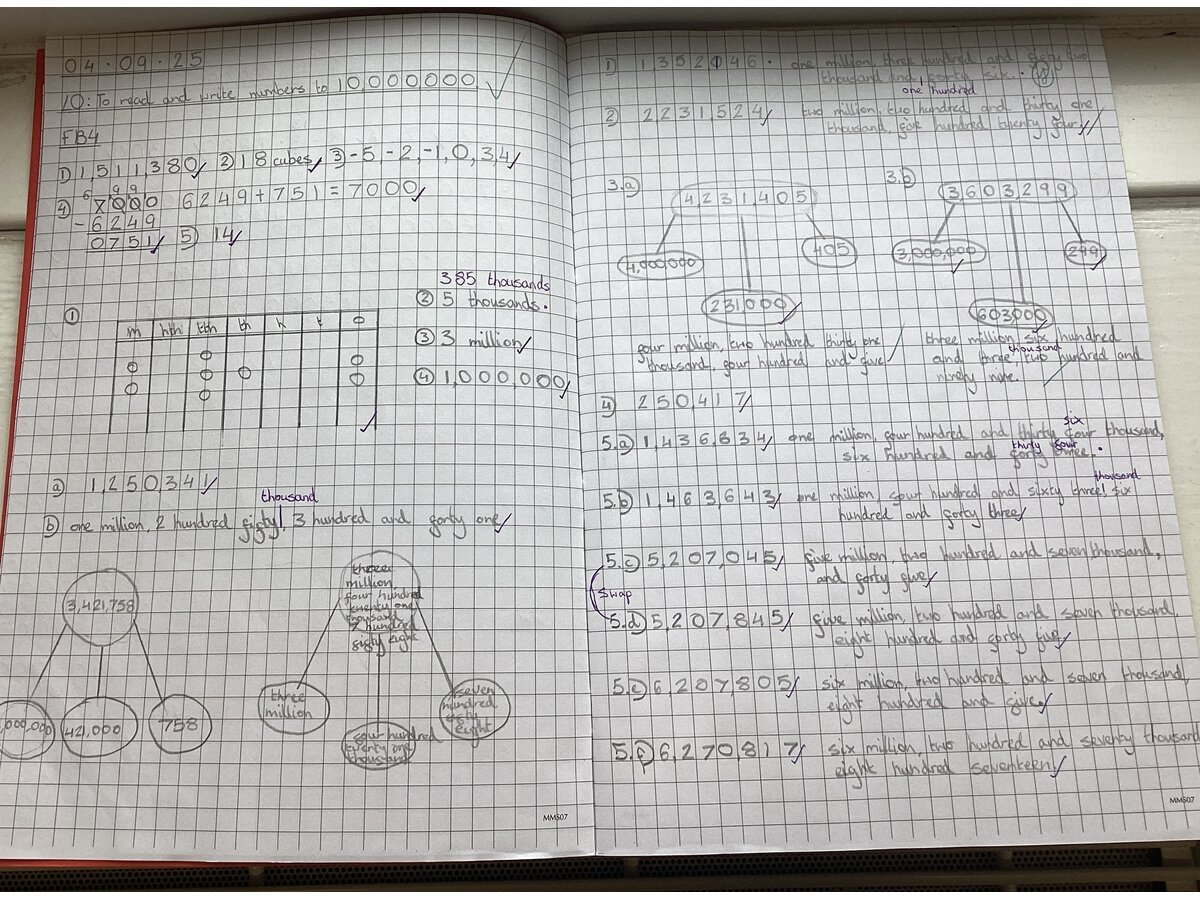 04.09.25
LO: To read and write numbers to 10,000,000
FB4
1) 1,511,380 2) 18 cubes 3) -5, -2, -1, 0, 3, 4
4) 7000 6249 + 751 = 7000
6 9 9
- 6249
0751 5) 14
385 thousands
2 5 thousands.
1
m hth tth th h t o
3 3 million
4 1,000,000
a) 1,250,341
thousand
b) one million, 2 hundred fifty, 3 hundred and forty one
3,421,758
,000,000 421,000 758
three
million,
four hundred
twenty one
thousand
7 hundred
fifty eight
three
million
four hundred
twenty one
thousand
seven
hundred
fifty
eight
MM507
1) 1,352,046. one million, three hundred and fifty two
thousand and forty six.
one hundred
2) 2,231,524 two million, two hundred and thirty one
thousand, five hundred twenty four
3.a) 4,231,405
4,000,000 231000 405
four million, two hundred thirty one
thousand, four hundred and five
3.b) 3,603,299
3,000,000 603,000 299
three million, six hundred
thousand
and three two hundred and
ninety nine.
4) 250,417
six
5.a) 1,436,634 one million, four hundred and thirty four thousand,
thirty four
six hundred and forty three.
thousand
5.b) 1,463,643 one million, four hundred and sixty three, six
hundred and forty three
5.c) 5,207,045 five million, two hundred and seven thousand,
and forty five
Swap
5.d) 5,207,845 five million, two hundred and seven thousand,
eight hundred and forty five
5.e) 6,207,805 six million, two hundred and seven thousand,
eight hundred and five
5.f) 6,270,817 six million, two hundred and seventy thousand
eight hundred seventeen
MM507